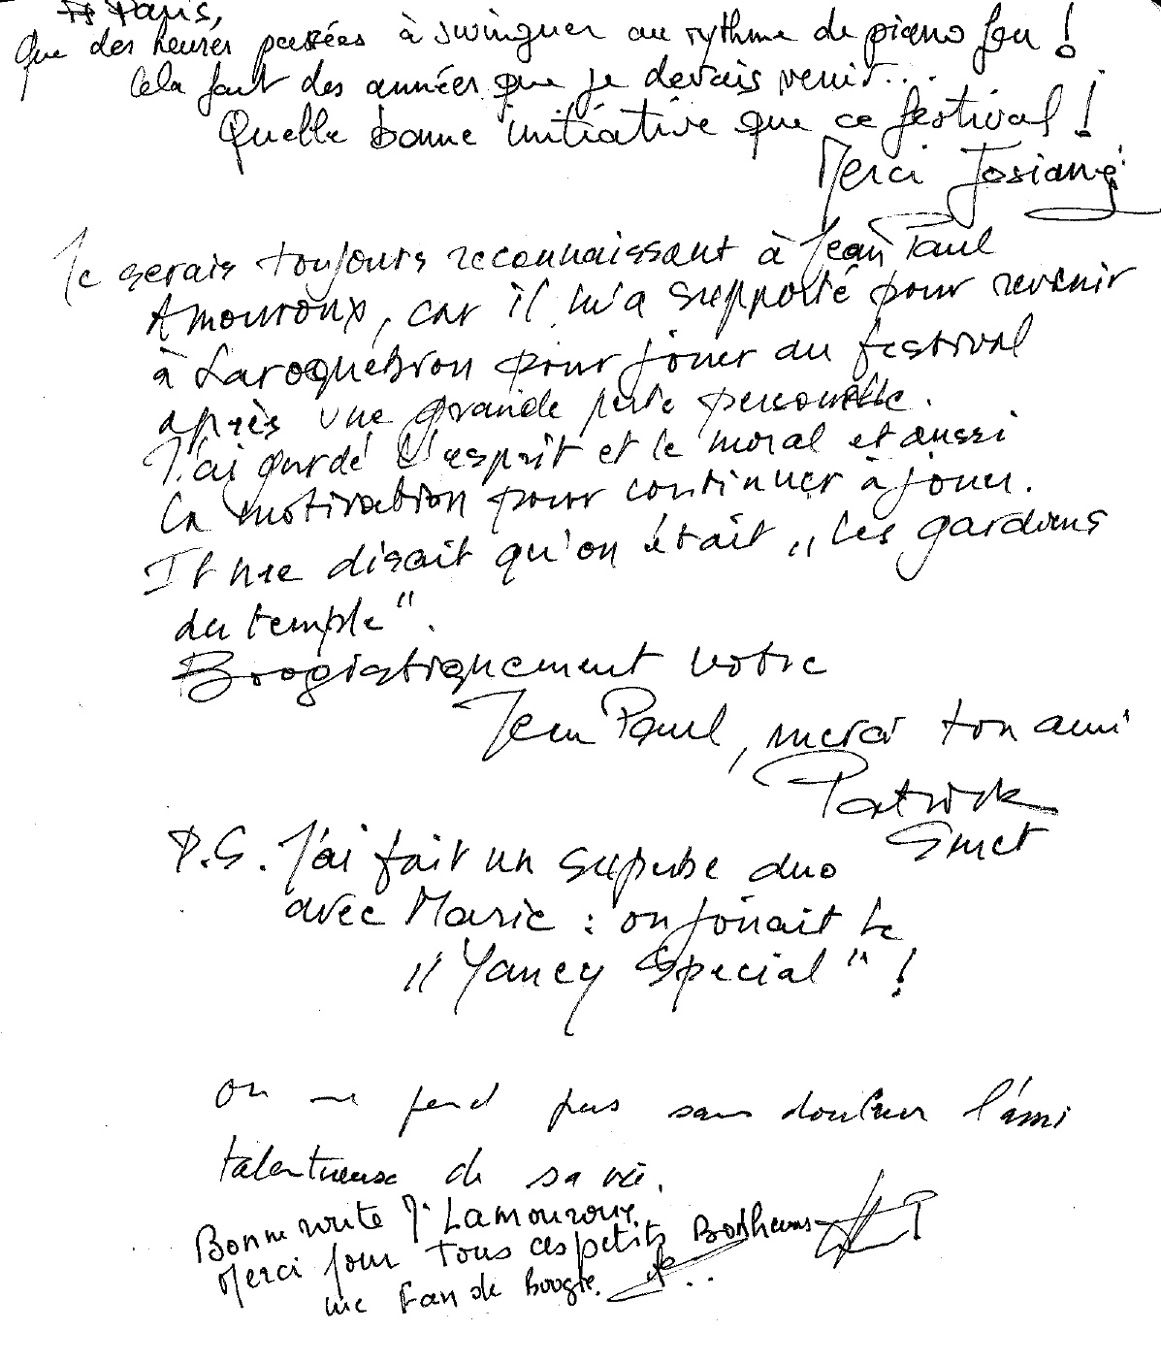 Paris,
Que des heures passées à swinguer au rythme de piano feu !
Cela fait des années que je devais venir...
Quelle bonne initiative que ce festival !
Merci Josiane
Je serais toujours reconnaissant à Jean Paul
Amouroux, car il m'a supporté pour revenir
à Laroquebrou pour jouer au festival
après une grande perte personelle.
J'ai gardé l'esprit et le moral et aussi
la motivation pour continuer à jouer.
Il me disait qu'on était „Les gardiens
du temple“.
Boogistiquement votre
Jean Paul, merci ton ami
Patrick
Smet
P.S. J'ai fait un superbe duo
avec Marie : on jouait le
"Yancy Special" !
On ne perd pas sans douleur l'ami
talentueux de sa vie.
Bonne route Mr Lamouroux.
Merci pour tous ces petits Bonheurs
une Fan de Boogie.